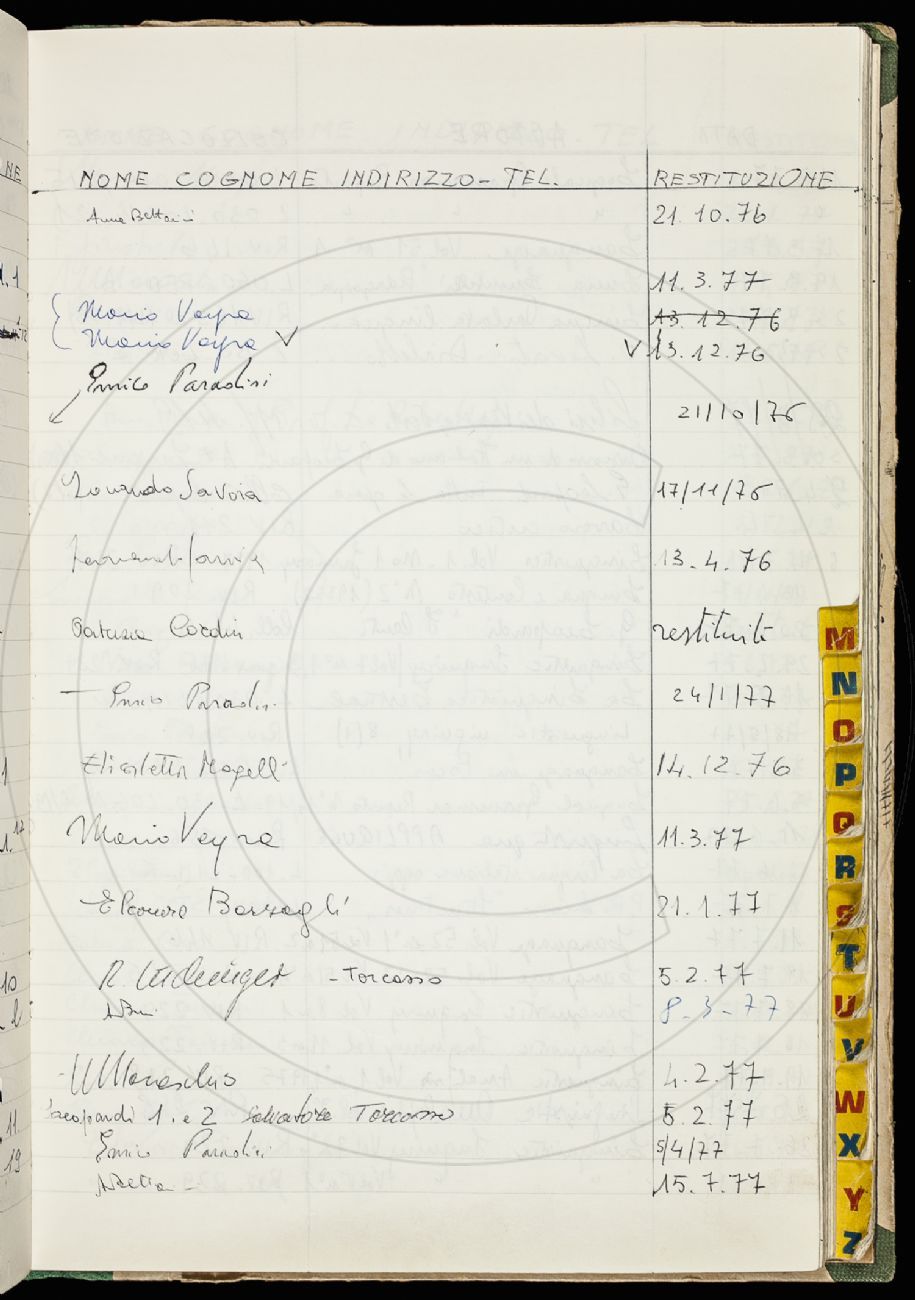 NE
NOME COGNOME INDIRIZZO - TEL. RESTITUZIONE
Anna Bettarini 21.10.76
11.3.77
Mario Vayra 13.12.76
Mario Vayra V V 13.12.76
Enrico Paradisi
21/10/76
Leonardo Savoia 17/11/76
13.4.76
restituito
- Enrico Paradisi 24/1/77
Elisabetta Magelli 14.12.76
Mario Vayra 11.3.77
Eleonora Barzagli 21.1.77
R. - Torcasso 5.2.77
8-3-77
4.2.77
Leopardi 1. e 2 Salvatore Torcasso 5.2.77
Enrico Paradisi 5/4/77
15.7.77
10
11
19
M
N
O
P
Q
R
S
T
U
V
W
X
Y
Z